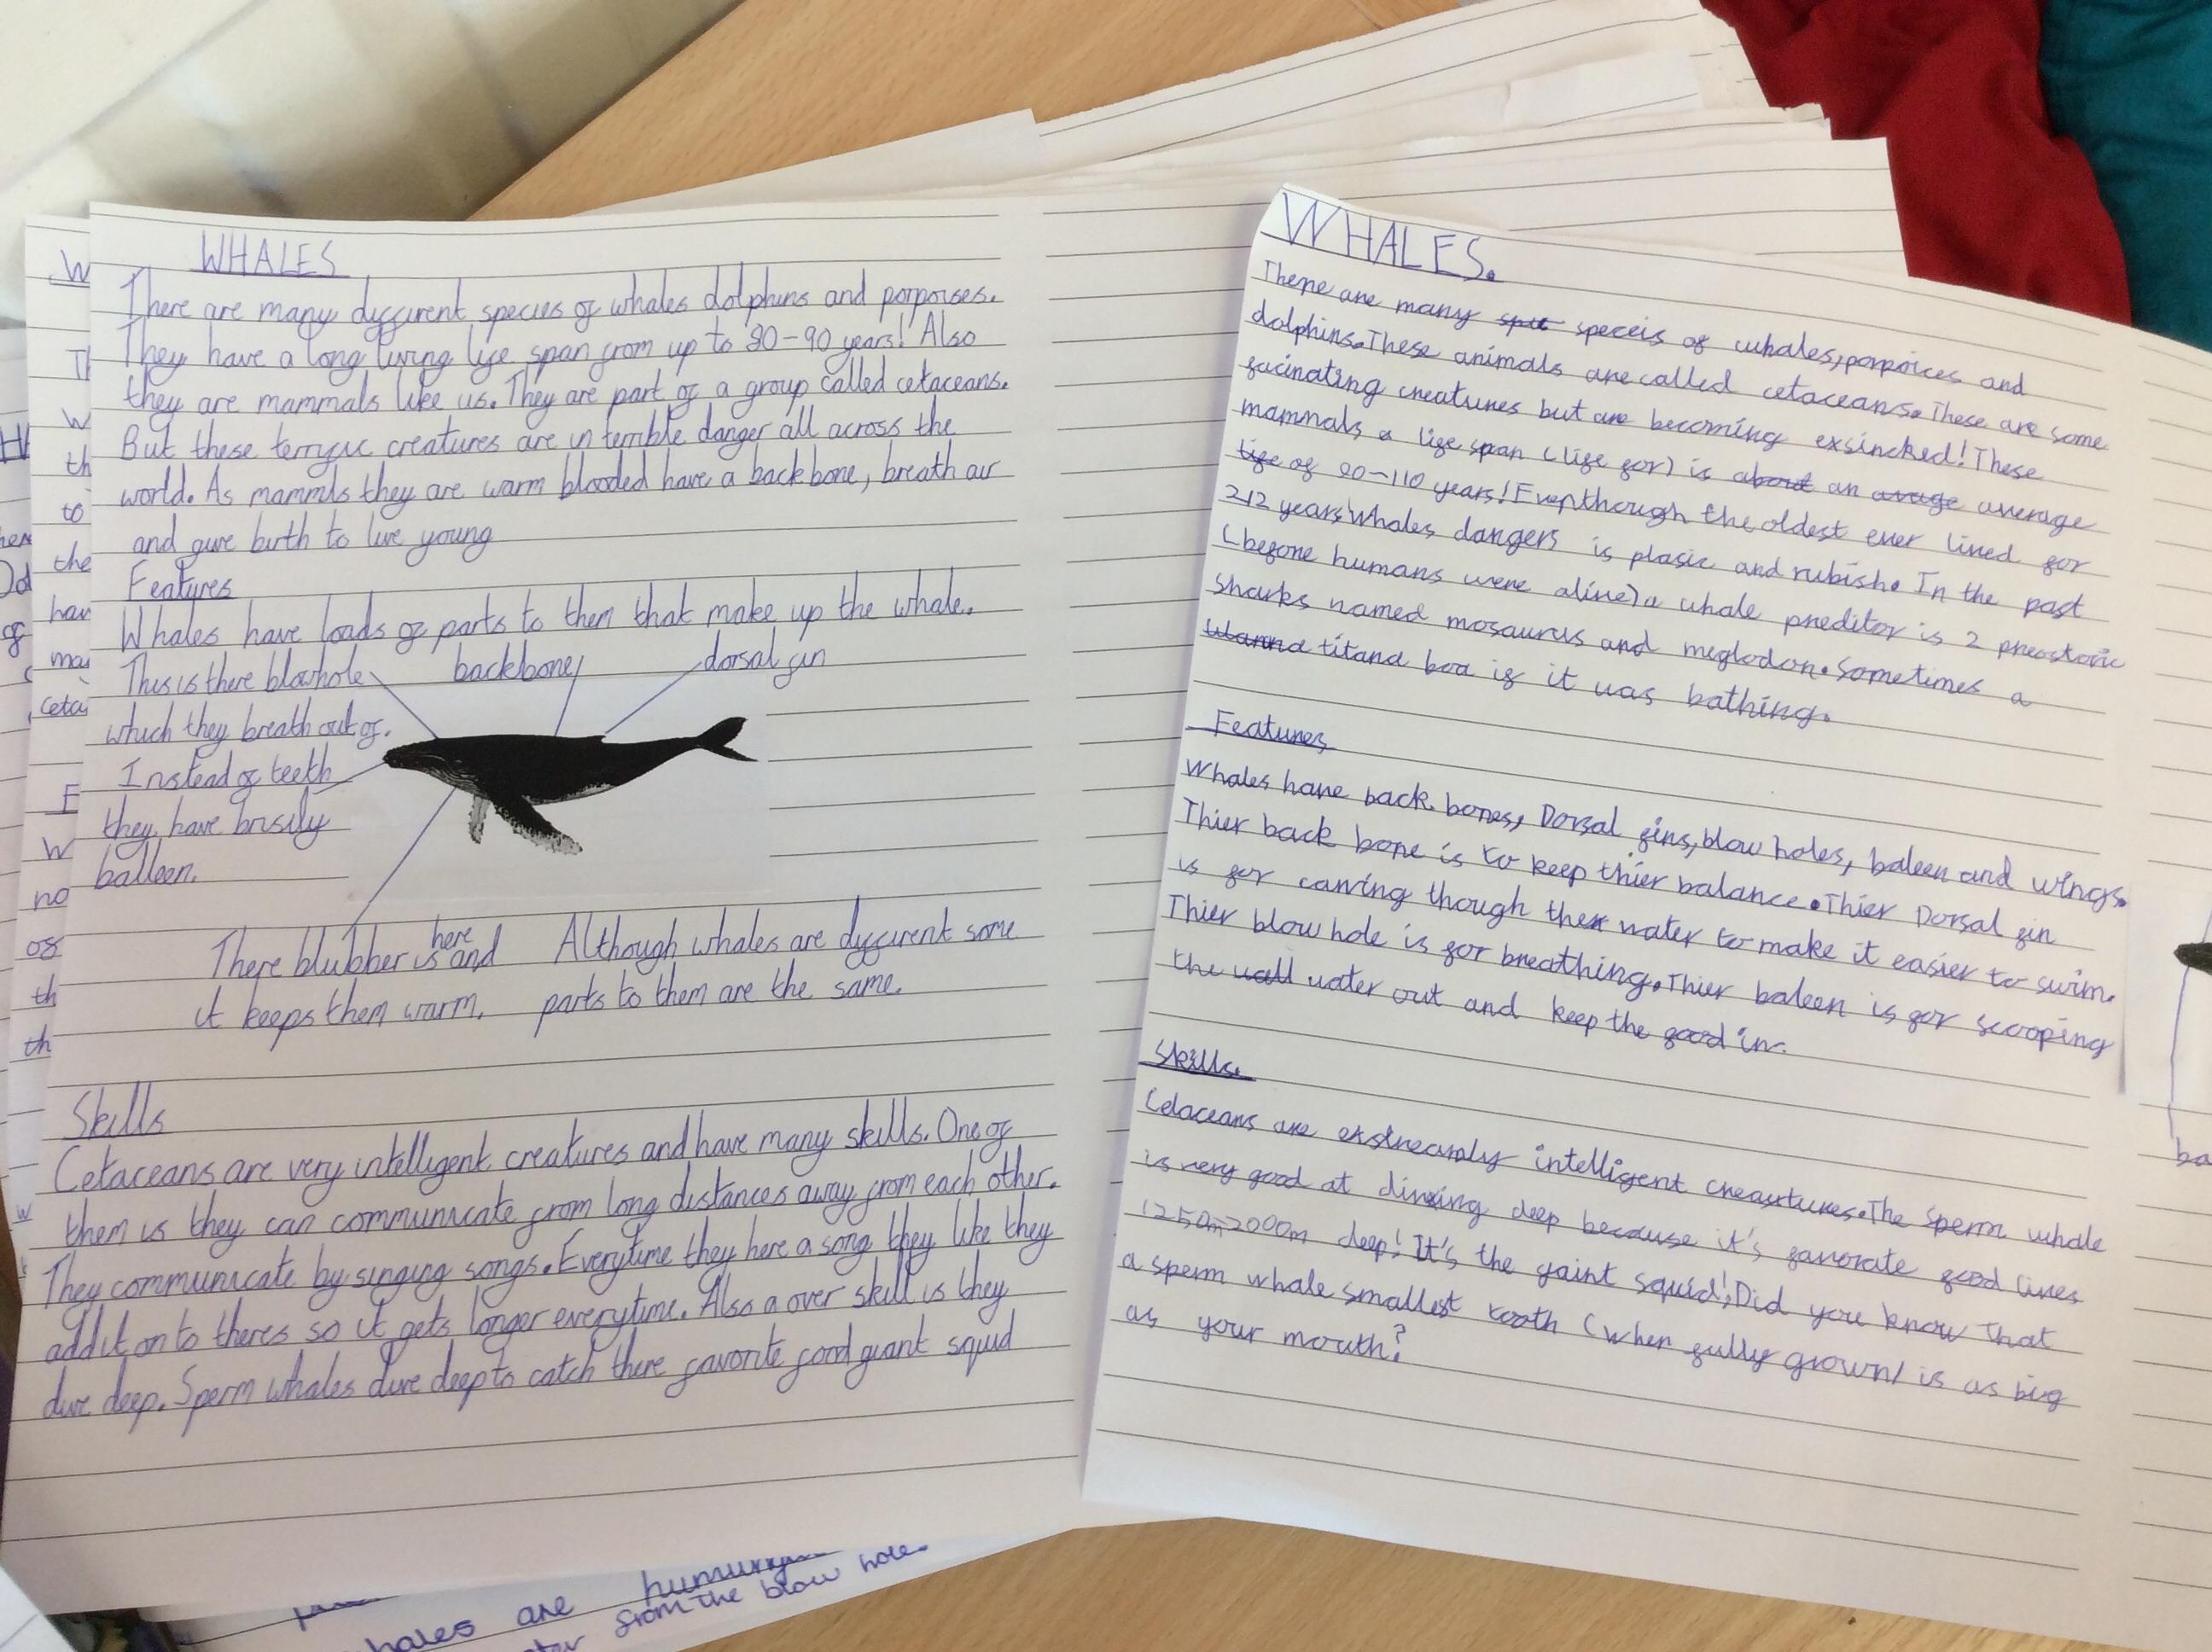 WHALES
There are many diffirent species of whales dolphins and porpoises.
They have a long living life span from up to 80-90 years! Also
they are mammals like us. They are part of a group called cetaceans.
But these terrific creatures are in terrible danger all across the
world. As mammls they are warm blooded have a backbone, breath air
and give birth to live young
Features
Whales have loads of parts to them that make up the whale.
This is there blowhole
which they breath out of.
backbone
dorsal fin
Instead of teeth
they have brisily
balleen.
There blubber is here and
it keeps them warm.
Although whales are diffirent some
parts to them are the same.
Skills
Cetaceans are very intelligent creatures and have many skills. One of
them is they can communicate from long distances away from each other.
They communicate by singing songs. Everytime they here a song they like they
add it on to theres so it gets longer everytime. Also a over skill is they
dive deep. Sperm whales dive deep to catch there favorite food giant squid
WHALES.
There are many speceis of whales, porpoices and
dolphins. These animals are called cetaceans. These are some
facinating creatures but are becoming exsincked! These
mammals a life span (life for) is about an avrage average
life of 20-110 years! Even though the oldest ever lived for
212 years Whales dangers is plasic and rubish. In the past
(before humans were alive) a whale preditor is 2 preastoric
Sharks named mosaurus and meglodon. Sometimes a
titana boa if it was bathing.
Features
Whales have back bones, Dorsal fins, blow holes, baleen and wings.
Thier back bone is to keep thier balance. Thier Dorsal fin
is for carving though the water to make it easier to swim.
Thier blow hole is for breathing. Thier baleen is for scooping
the wall water out and keep the food in.
Skills.
Cetaceans are exstreamly intelligent creautures. The Sperm whale
is very good at diving deep because it's favorate food lives
1250m-2000m deep! It's the gaint squid! Did you know that
a sperm whale smallest tooth (when fully grown) is as big
as your mouth?
hales are
from the blow hole.